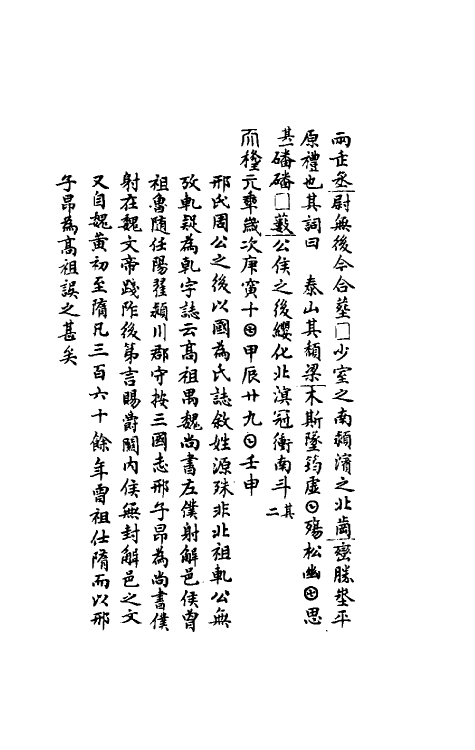 兩玄丞尉無後今合塟□少室之南潁濱之北崗壟勝塋平
原禮也其詞曰　泰山其頹梁木斯墜筠虛㊐殤松幽㊉思
其一磻磻□藪公侯之後纓化北溟冠衝南斗其二
而擡元秊歲次庚寅十㊉甲辰廿九㊐壬申
邢氏周公之後以國為氏誌敘姓源殊非北祖軌公無
攷軌疑為軋字誌云高祖禺魏尚書左僕射解邑侯曾
祖魯隨任陽翟潁川郡守按三國志邢子昂為尚書僕
射在魏文帝踐阼後第言賜爵關內侯無封解邑之文
又自魏黃初至隋凡三百六十餘年曾祖仕隋而以邢
子昂為高祖誤之甚矣